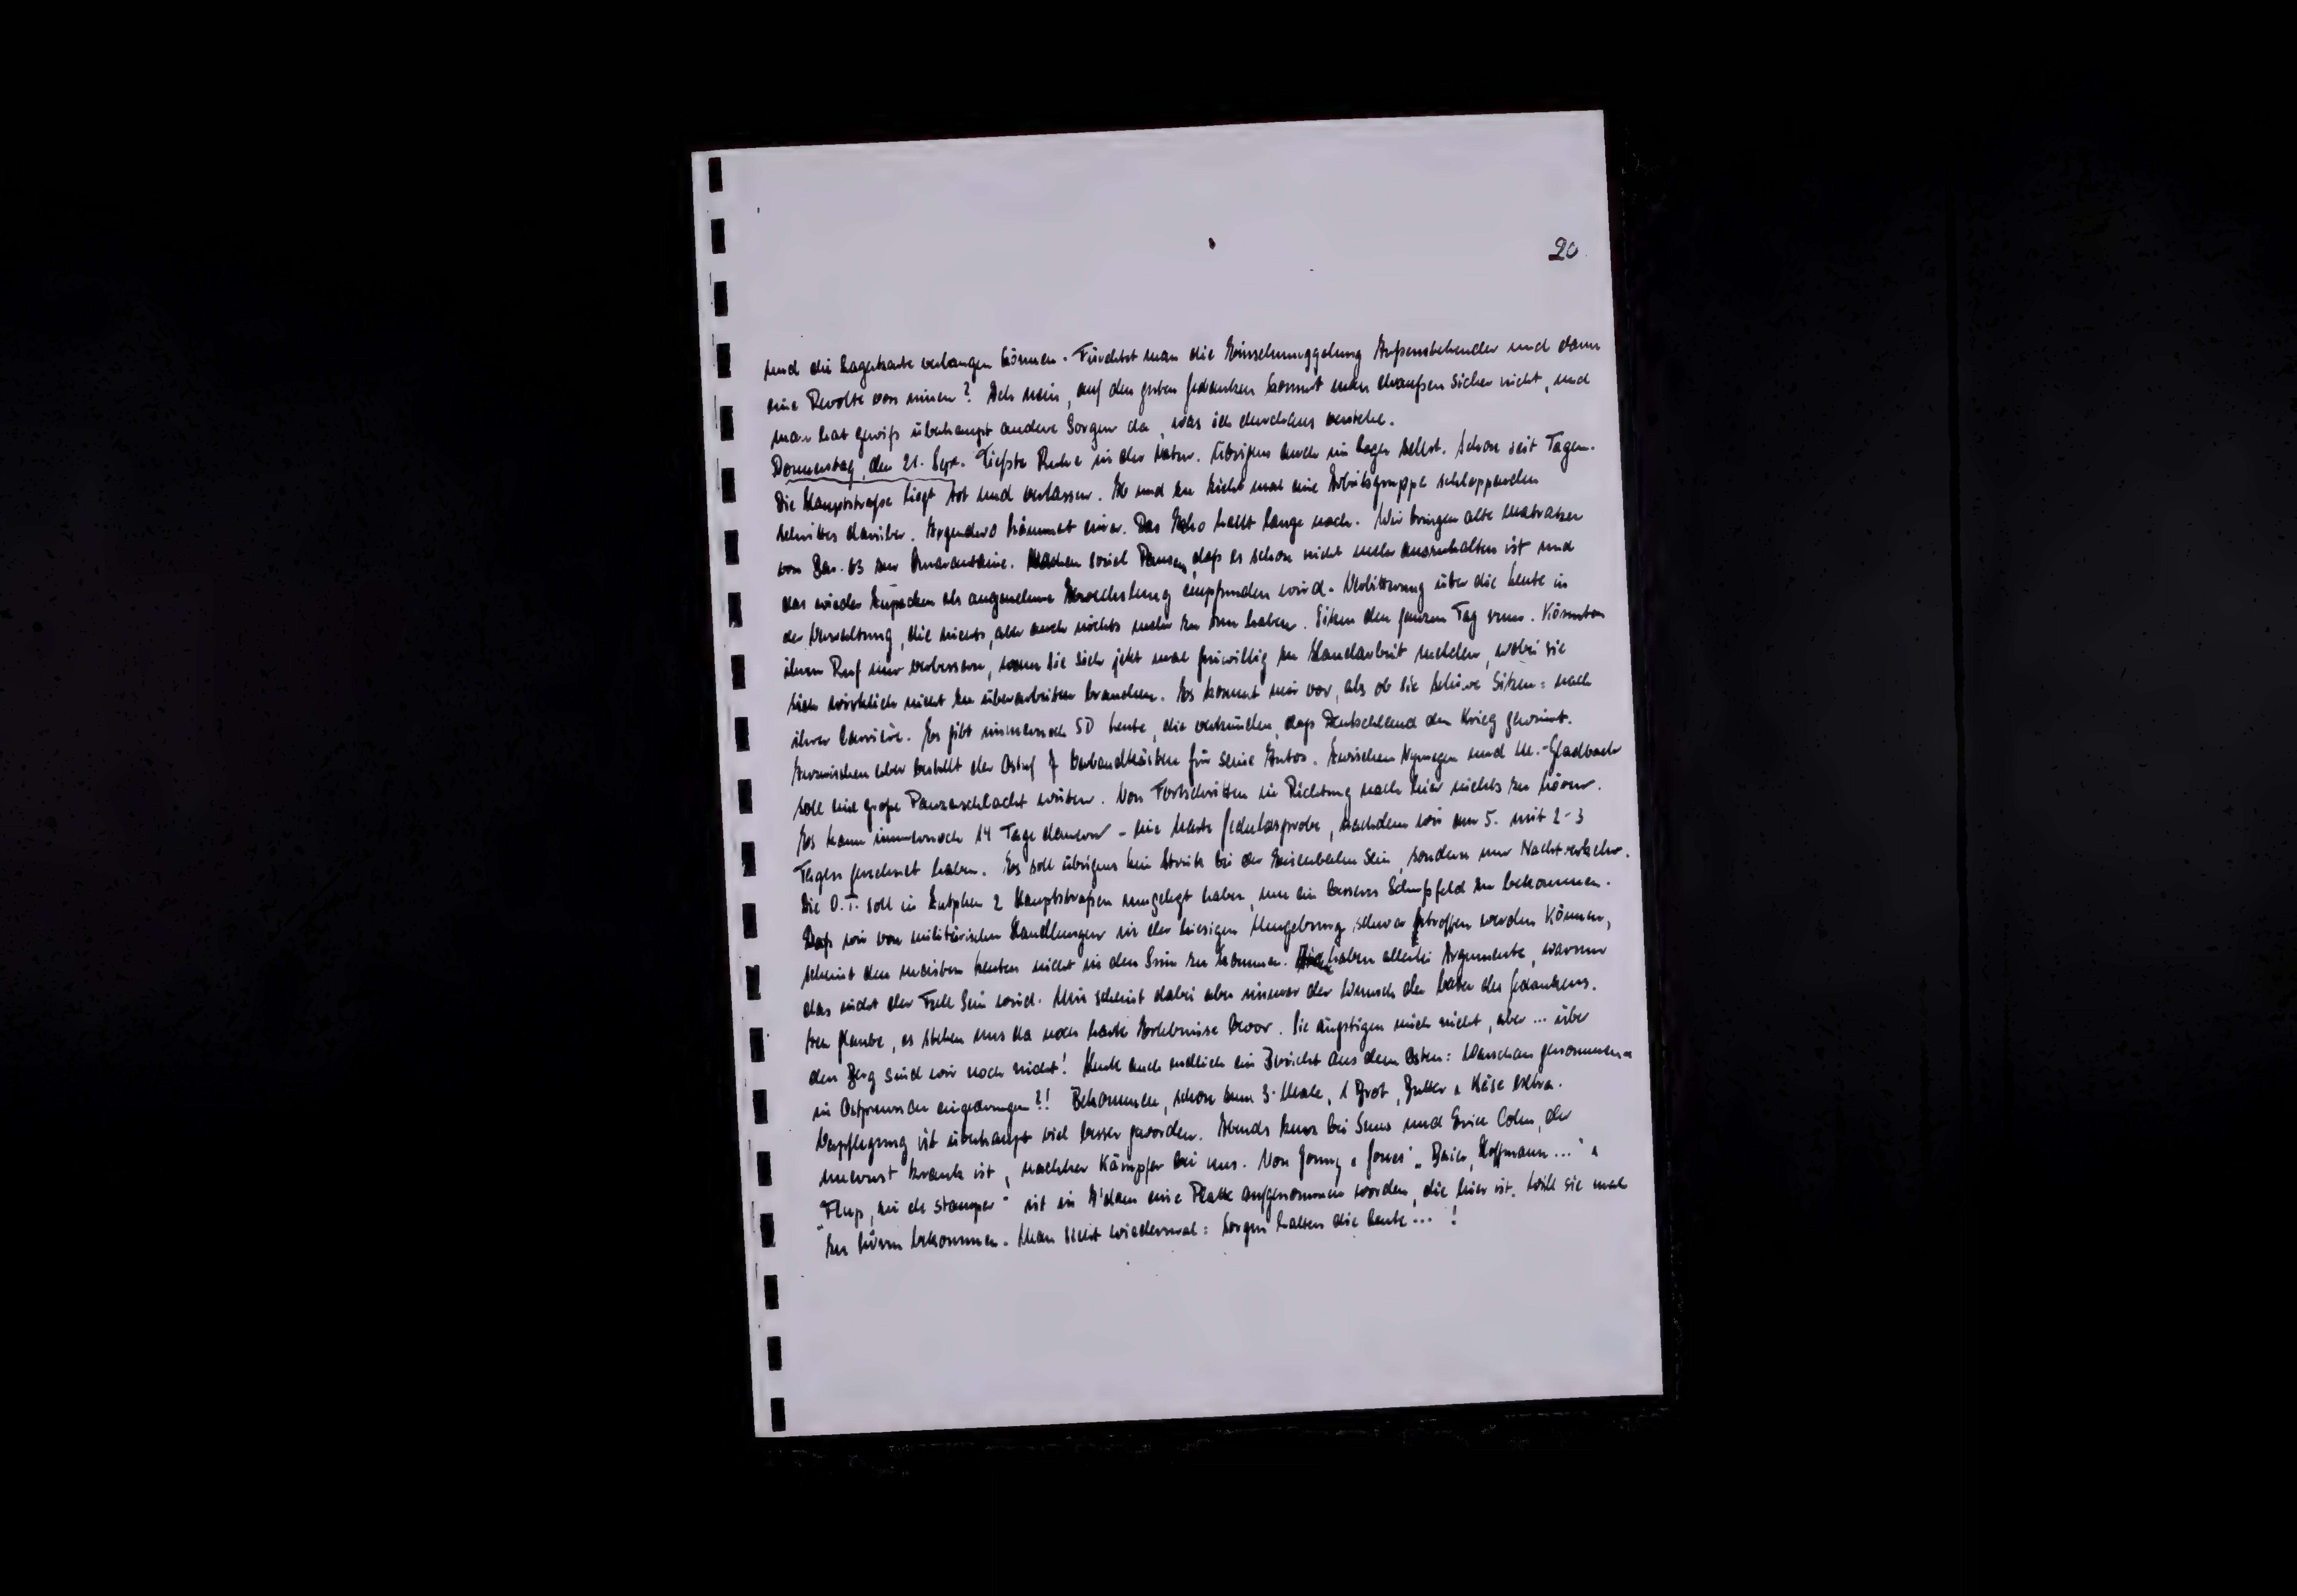 20
und die Lagerkarte verlangen können. Fürchtet man die Einschmuggelung Aussenstehender und dann
eine Revolte von innen? Ach nein, auf den guten Gedanken kommt man draußen sicher nicht, und
man hat gewiß überhaupt andere Sorgen da, was ich durchaus verstehe.
Donnerstag, den 21. Sept. Tiefste Ruhe in der Natur. Übrigens auch im Lager selbst. Schon seit Tagen.
Die Hauptstraße liegt tot und verlassen. Ab und zu zieht mal eine Arbeitsgruppe schleppenden
Schrittes darüber. Irgendwo hämmert einer. Das Echo hallt lange nach. Wir bringen alte Matratzen
von Bar. 63 zur Quarantaine. Machen soviel Pausen, daß es schon nicht mehr auszuhalten ist und
das wieder Zupacken als angenehme Abwechslung empfunden wird. Verbitterung über die Leute in
der Verwaltung, die nichts, aber auch nichts mehr zu tun haben. Sitzen den ganzen Tag rum. Könnten
ihren Ruf nur verbessern, wenn sie sich jetzt mal freiwillig zu Handarbeit melden, wobei sie
sich wirklich nicht zu überarbeiten brauchen. Es kommt mir vor, als ob sie Schiwe sitzen: nach
ihrer Carrière. Es gibt immernoch SD Leute, die verkünden, daß Deutschland den Krieg gewinnt.
Inzwischen aber bestellt der Ostuf 7 Verbandkästen für seine Autos. Zwischen Nymegen und M.-Gladbach
soll eine große Panzerschlacht wüten. Von Fortschritten in Richtung nach hier nichts zu hören.
Es kann immernoch 14 Tage dauern - eine harte Geduldsprobe, nachdem wir am 5. mit 2-3
Tagen gerechnet haben. Es soll übrigens kein Streik bei der Eisenbahn sein, sondern nur Nachtverkehr.
Die O.T. soll in Zutphen 2 Hauptstraßen umgelegt haben, um ein besseres Schußfeld zu bekommen.
Daß wir von militärischen Handlungen in der hiesigen Umgebung schwer getroffen werden können,
scheint den meisten Leuten nicht in den Sinn zu kommen. Sie haben allerlei Argumente, warum
das nicht der Fall sein wird. Mir scheint dabei aber immer der Wunsch der Vater des Gedankens.
Ich glaube, es stehen uns da noch harte Erlebnisse bevor. Sie ängstigen mich nicht, aber ... über
den Berg sind wir noch nicht! Heute auch endlich ein Bericht aus dem Osten: Warschau genommen &
in Ostpreussen eingedrungen?! Bekommen, schon zum 3. Male, 1 Brot, Butter & Käse extra.
Verpflegung ist überhaupt viel besser geworden. Abends kurz bei Sens und Erich Cohn, der
unernst krank ist, nachher Kämpfer bei uns. Von Jonny & Jones' "Baier, Hoffmann ..." &
"Flup, zei de stamper" ist in A'dam eine Platte aufgenommen worden, die hier ist. Will sie mal
zu hören bekommen. Man sieht wiedermal: Sorgen haben die Leute ... !